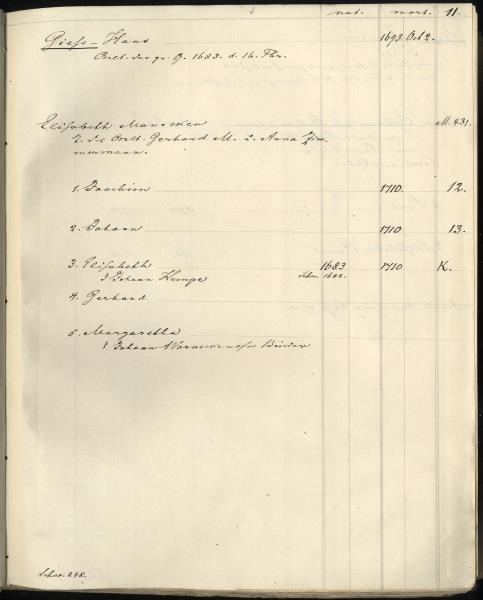 nat. mort. 11.
Giese - Hans 1693 Oct 2.
Oelt. der gr. G. 1683. d. 16. Fbr.
Elisabeth Manecken M. 431.
T. des Oelt. Gerhard M. u. Anna Zim
mermann.
1. Joachim 1710. 12.
2. Johann 1710 13.
3. Elisabeth 1683 1710 K.
Johann Kempe 1682.
4. Gerhard
5. Margaretha
Johann Warnecke
Schw. 298.